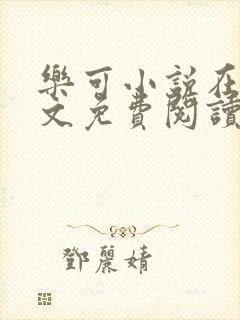 樂可小說在
文免費閱讀
鄧麗婧